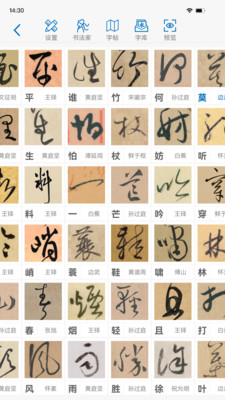 14:30
设置 书法家 字帖 字库 预览
文征明 平 王铎 谁 黄庭坚 竹 宋徽宗 何 孙过庭 莫 边武
黄庭坚 生 黄庭坚 怕 杖 鲜于枢 妨 孙过庭 听
王铎 料 王铎 一 白蕉 芒 孙过庭 吟 黄庭坚 穿 鲜于
王铎 峭 王铎 蓑 边武 鞋 黄道周 啸 傅山 林
白蕉 春 张旭 烟 王铎 轻 孙过庭 且 孙过庭 打
黄庭坚 风 怀素 雨 黄庭坚 胜 孙过庭 徐 祝允明 叶